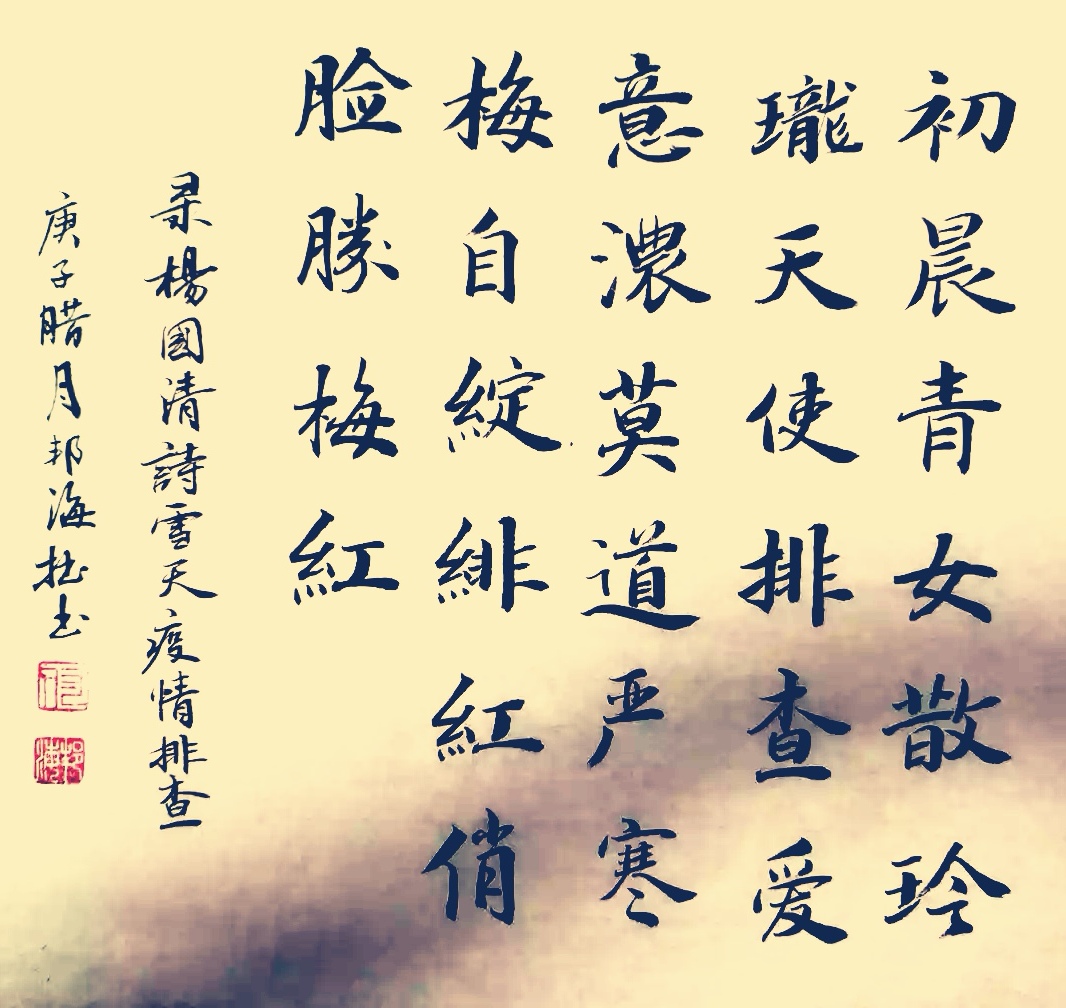 初晨青女散玲
瓏天使排查爱
意濃莫道严寒
梅自綻緋红俏
脸勝梅紅
录楊國清詩雪天疫情排查
庚子腊月邦海拙书
邦海